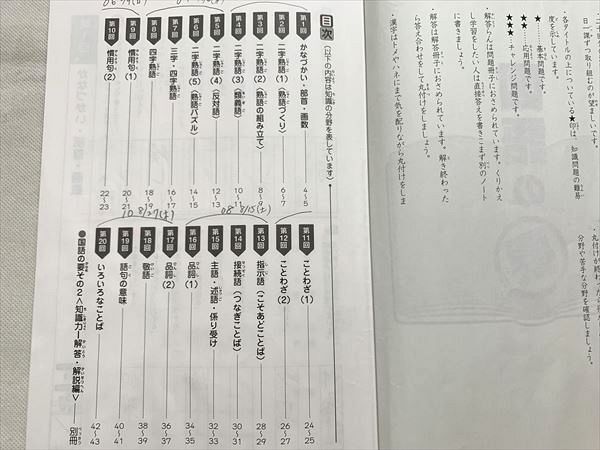 日一課ずつ取り組むのが望ましいです。
・各タイトルの上についている★印は、知識問題の難易
度を示しています。
★ 基本問題です。
★★ 応用問題です。
★★★ チャレンジ問題です。
・解答らんは問題冊子におさめられています。くりかえ
し学習をしたい人は直接答えを書きこまず別のノート
に書きましょう。
・解答は解答冊子におさめられています。解き終わった
ら答え合わせをして丸付けをしましょう。
・漢字はトメやハネにまで気を配りながら丸付けをしま
・丸付けが終わったら
分野や苦手な分野を確認しましょう。
目次
(以下の内容は知識の分野を表しています)
第1回 かなづかい・部首・画数 4〜5
第2回 二字熟語(1)〈熟語づくり〉 6〜7
第3回 二字熟語(2)〈熟語の組み立て〉 8〜9
第4回 二字熟語(3)〈類義語〉 10〜11
第5回 二字熟語(4)〈反対語〉 12〜13
第6回 二字熟語(5)〈熟語パズル〉 14〜15
第7回 三字・四字熟語 16〜17
第8回 四字熟語 18〜19
第9回 慣用句(1) 20〜21
第10回 慣用句(2) 22〜23
8/15(土)
8/27(土)
第11回 ことわざ(1) 24〜25
第12回 ことわざ(2) 26〜27
第13回 指示語(こそあどことば) 28〜29
第14回 接続語(つなぎことば) 30〜31
第15回 主語・述語・係り受け 32〜33
第16回 品詞(1) 34〜35
第17回 品詞(2) 36〜37
第18回 敬語 38〜39
第19回 語句の意味 40〜41
第20回 いろいろなことば 42〜43
●国語の要その2〈知識力ー解答・解説編〉 別冊